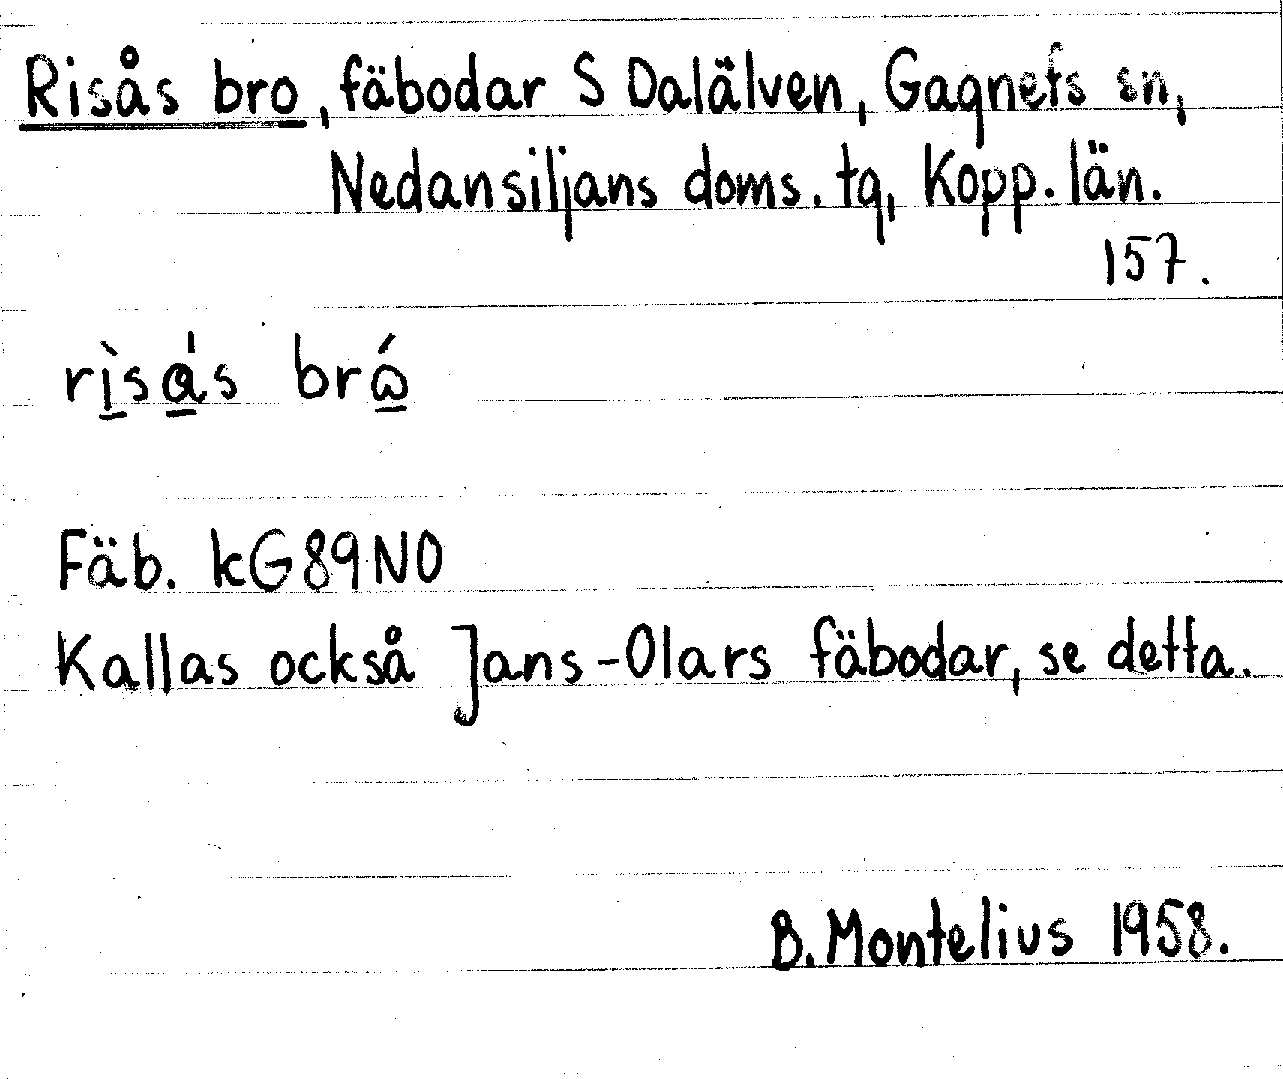 Risås bro, fäbodar S Dalälven, Gagnefs sn,
Nedansiljans doms. tg, Kopp. län.
157.
rìsås bró
Fäb. kG89NO
Kallas också Jans-Olars fäbodar, se detta.
B. Montelius 1958.